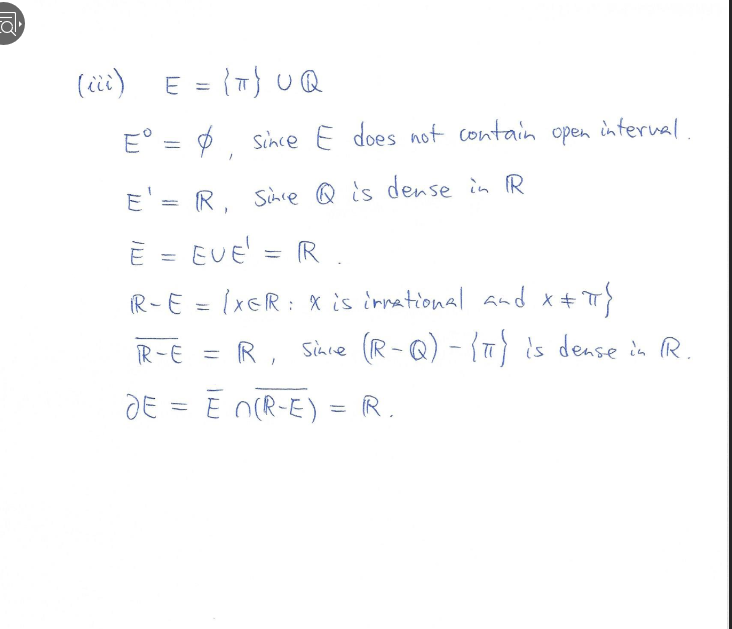 (iii) E = {π} ∪ ℚ
E° = ϕ, since E does not contain open interval.
E' = ℝ, since ℚ is dense in ℝ
Ē = E∪E' = ℝ.
ℝ-E = {x∈ℝ : x is irrational and x ≠ π}
\overline{ℝ-E} = ℝ, since (ℝ-ℚ) - {π} is dense in ℝ.
∂E = Ē ∩ \overline{(ℝ-E)} = ℝ.